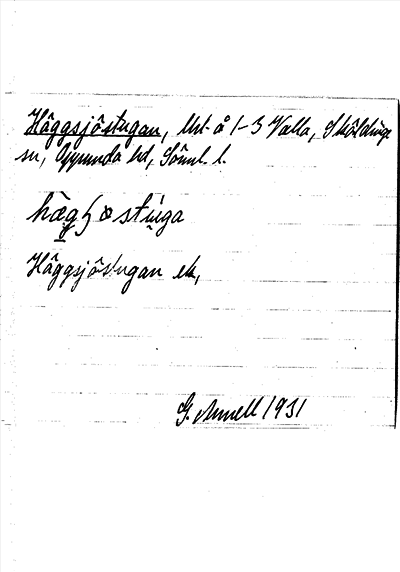 Häggsjöstugan, Ut. å 1-3 Valla, Sköldinge
sn, Oppunda hd, Söml. l.
hægʃ ø stuga
Häggsjöstugan ek,
G. Annell 1931